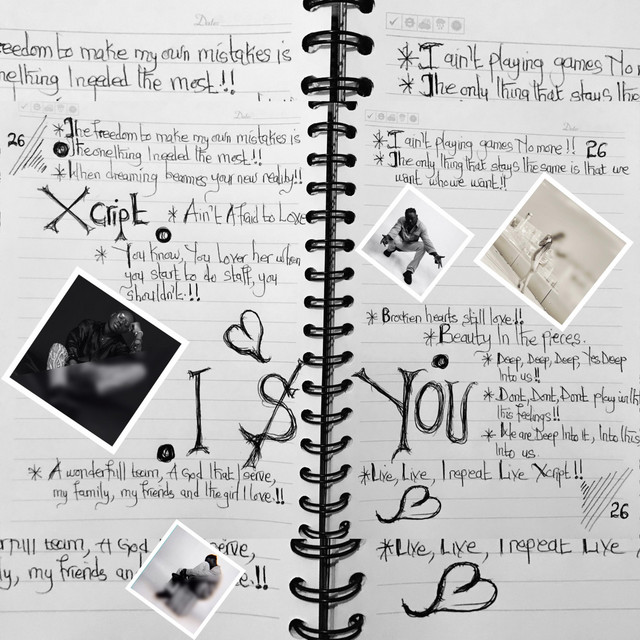 Date
eedom to make my own mistakes is
nething I needed the most!!
Date
26
*The freedom to make my own mistakes is
The onething I needed the most!!
*When dreaming becomes your new reality!!
Xcript
*Ain't Afraid to Love
*You know, You lover her when
you start to do staff, you
shouldn't!!
I $
*A wonderfull team, A God that I serve,
my family, my friends and the girl I love!!
rfull team, A God
erve,
ly, my friends an
e.!!
*I ain't playing games No m
*The only 'thing that stays the
Date
*I ain't playing games No more!! 26
*The only 'thing that stays the same is that we
want who we want!!
*Brocken hearts still love!!
*Beauty In the pieces.
*Deep, Deep, Deep, Yes Deep
Into us!!
*Dont, Dont, Dont play with
this feelings!!
*We are Deep Into it, Into this
Into us.
YOU
*Live, Live, I repeat Live Xcript!!
26
*Live, Live, I repeat Live